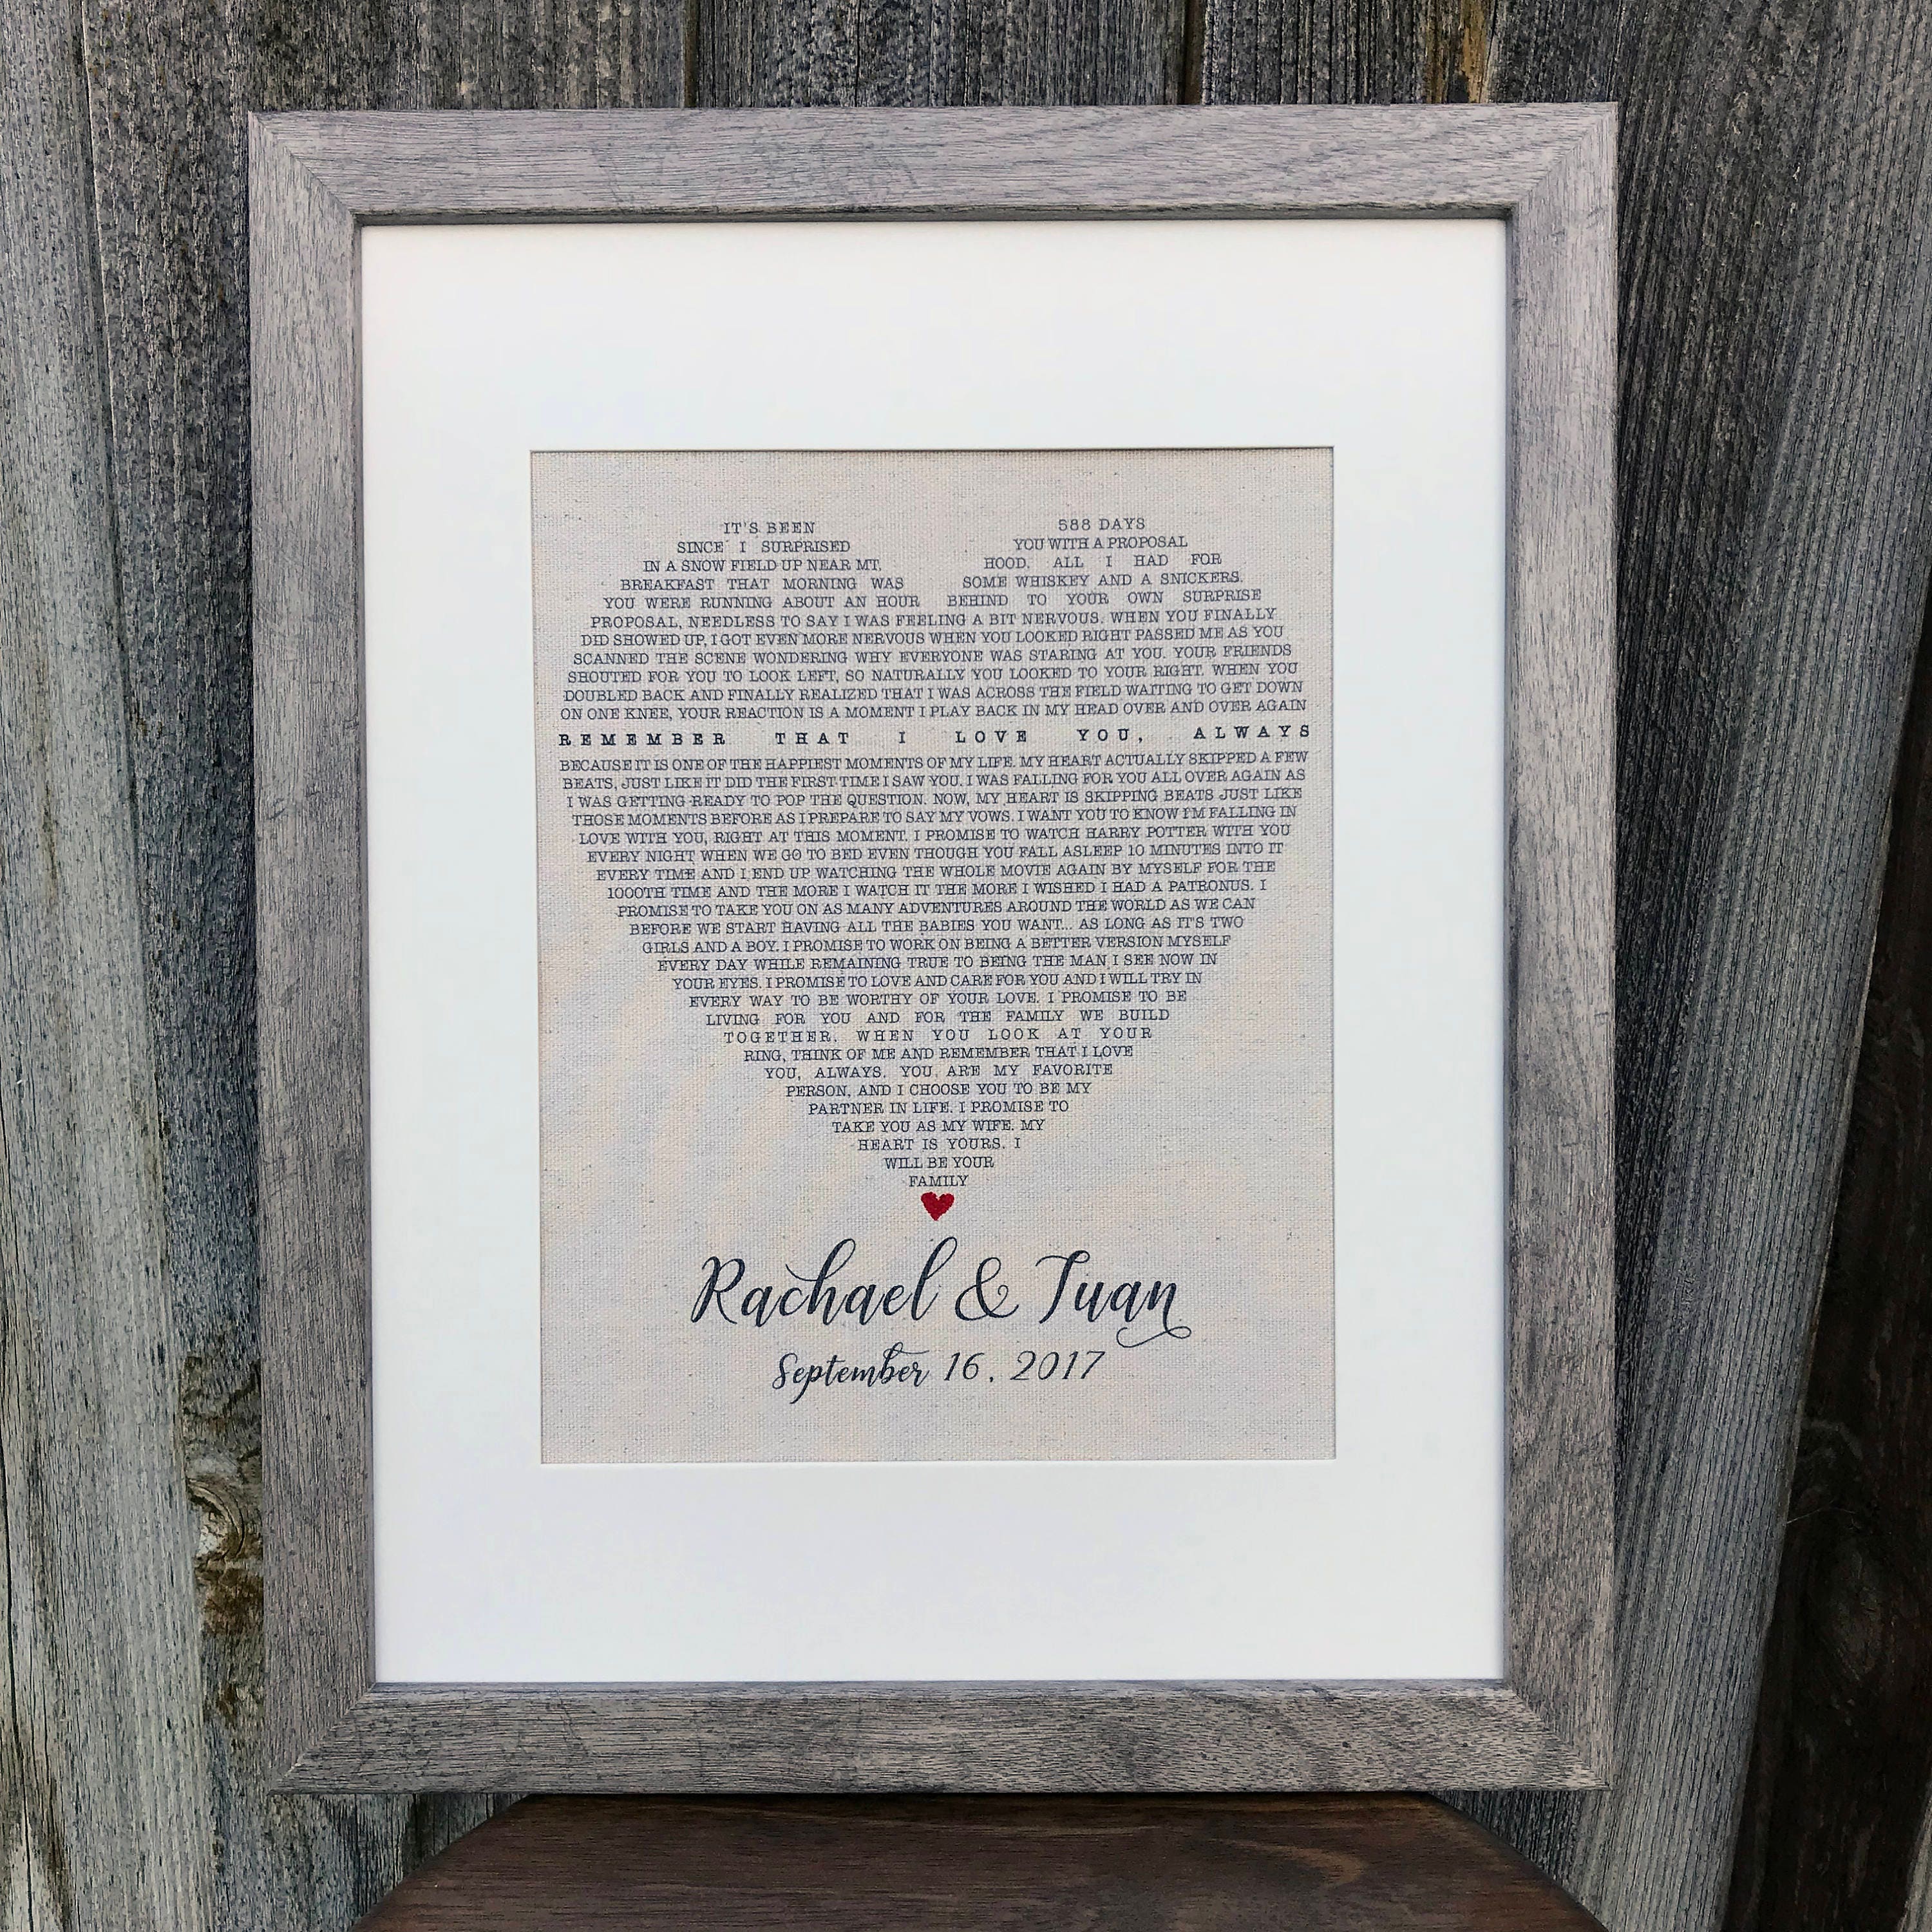 IT'S BEEN 588 DAYS
SINCE I SURPRISED YOU WITH A PROPOSAL
IN A SNOW FIELD UP NEAR MT. HOOD. ALL I HAD FOR
BREAKFAST THAT MORNING WAS SOME WHISKEY AND A SNICKERS.
YOU WERE RUNNING ABOUT AN HOUR BEHIND TO YOUR OWN SURPRISE
PROPOSAL, NEEDLESS TO SAY I WAS FEELING A BIT NERVOUS. WHEN YOU FINALLY
DID SHOWED UP, I GOT EVEN MORE NERVOUS WHEN YOU LOOKED RIGHT PASSED ME AS YOU
SCANNED THE SCENE WONDERING WHY EVERYONE WAS STARING AT YOU. YOUR FRIENDS
SHOUTED FOR YOU TO LOOK LEFT, SO NATURALLY YOU LOOKED TO YOUR RIGHT. WHEN YOU
DOUBLED BACK AND FINALLY REALIZED THAT I WAS ACROSS THE FIELD WAITING TO GET DOWN
ON ONE KNEE, YOUR REACTION IS A MOMENT I PLAY BACK IN MY HEAD OVER AND OVER AGAIN
REMEMBER THAT I LOVE YOU, ALWAYS
BECAUSE IT IS ONE OF THE HAPPIEST MOMENTS OF MY LIFE. MY HEART ACTUALLY SKIPPED A FEW
BEATS, JUST LIKE IT DID THE FIRST TIME I SAW YOU. I WAS FALLING FOR YOU ALL OVER AGAIN AS
I WAS GETTING READY TO POP THE QUESTION. NOW, MY HEART IS SKIPPING BEATS JUST LIKE
THOSE MOMENTS BEFORE AS I PREPARE TO SAY MY VOWS. I WANT YOU TO KNOW I'M FALLING IN
LOVE WITH YOU, RIGHT AT THIS MOMENT. I PROMISE TO WATCH HARRY POTTER WITH YOU
EVERY NIGHT WHEN WE GO TO BED EVEN THOUGH YOU FALL ASLEEP 10 MINUTES INTO IT
EVERY TIME AND I END UP WATCHING THE WHOLE MOVIE AGAIN BY MYSELF FOR THE
1000TH TIME AND THE MORE I WATCH IT THE MORE I WISHED I HAD A PATRONUS. I
PROMISE TO TAKE YOU ON AS MANY ADVENTURES AROUND THE WORLD AS WE CAN
BEFORE WE START HAVING ALL THE BABIES YOU WANT... AS LONG AS IT'S TWO
GIRLS AND A BOY. I PROMISE TO WORK ON BEING A BETTER VERSION MYSELF
EVERY DAY WHILE REMAINING TRUE TO BEING THE MAN I SEE NOW IN
YOUR EYES. I PROMISE TO LOVE AND CARE FOR YOU AND I WILL TRY IN
EVERY WAY TO BE WORTHY OF YOUR LOVE. I PROMISE TO BE
LIVING FOR YOU AND FOR THE FAMILY WE BUILD
TOGETHER. WHEN YOU LOOK AT YOUR
RING, THINK OF ME AND REMEMBER THAT I LOVE
YOU, ALWAYS. YOU ARE MY FAVORITE
PERSON, AND I CHOOSE YOU TO BE MY
PARTNER IN LIFE. I PROMISE TO
TAKE YOU AS MY WIFE. MY
HEART IS YOURS. I
WILL BE YOUR
FAMILY
Rachael & Tuan
September 16, 2017